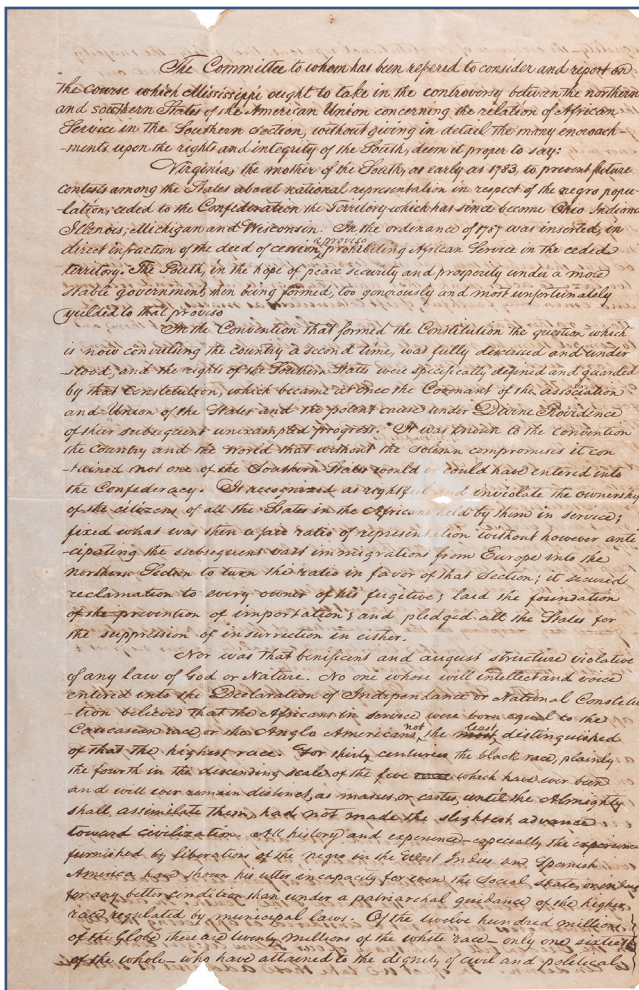 The Committee to whom has been refered to consider and report on
the course which Missisippi ought to take in the controversy between the northern
and southern States of the American Union concerning the relation of African
Service in the Southern section, without giving in detail the many encroach-
-ments upon the rights and integrity of the South, deem it proper to say:
Virginia, the mother of the South, as early as 1783, to prevent future
contests among the States about national representation in respect of the negro popu-
-lation, ceded to the Confederation the Territory which has since become Ohio Indiana
Illinois, Michigan and Wisconsin. In the ordinance of 1787 was inserted, in
direct infraction of the deed of cession, a proviso prohibiting African Service in the ceded
territory. The South, in the hope of peace security and prosperity under a more
stable government, then being formed, too generously and most unfortunately
yeilded to that proviso
In the Convention that formed the Constitution the question which
is now convulsing the country a second time, was fully discussed and under
-stood, and the rights of the Southern States were specifically defined and guarded
by that constitution, which became at once the Covenant of the association
and Union of the States and the potent cause under Divine Providence
of their subsequent unexampled progress. It was known to the convention
the Country and the world that without the solemn compromises it con
-tained not one of the Southern States would or could have entered into
the Confederacy. It recognized as rightful and inviolate the ownership
of the citizens of all the States in the Africans held by them in service;
fixed what was then a fair ratio of representation without however anti
-cipating the subsequent vast immigrations from Europe into the
northern Section to turn the ratio in favor of that Section; it secured
reclamation to every owner of his fugitive; laid the foundation
of the prevention of importation; and pledged all the States for
the suppression of insurrection in either.
Nor was that benificent and august structure violative
of any law of God or Nature. No one whose will intellect and voice
entered into the Declaration of Independance or National Constitu
-tion believed that the Africans in service were born equal to the
Caucasian race or the Anglo Americans, not the least distinguished
of that the highest race. For thirty centuries the black race, plainly
the fourth in the descending scale of the five which have ever been
and will ever remain distinct, as masses or castes, until the Almighty
shall assimilate them, had not made the slightest advance
toward civilization. All history and experience—especially the experience
furnished by liberations of the negro in the West Indies and Spanish
America have shown his utter incapacity for even the social state, or
for any better condition than under a patriarchal guidance of the higher
race regulated by municipal laws. Of the twelve hundred millions
of the Globe there are twenty millions of the white race—only one sixtieth
of the whole—who have attained to the dignity of civil and political